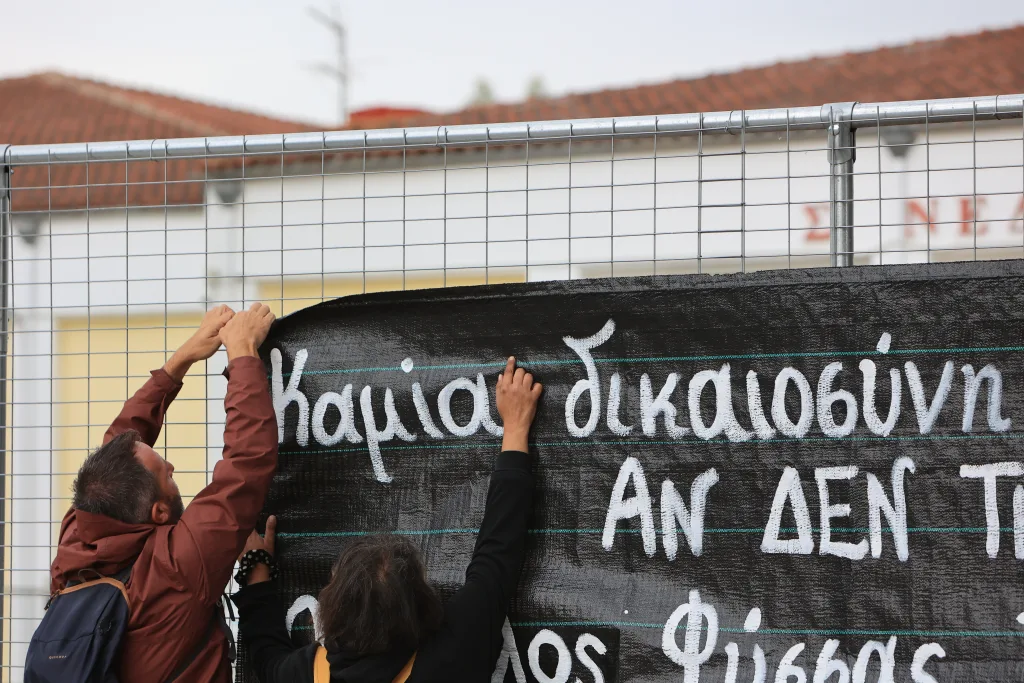 Καμία δικαιοσύνη
ΑΝ ΔΕΝ
λος Φύσσας